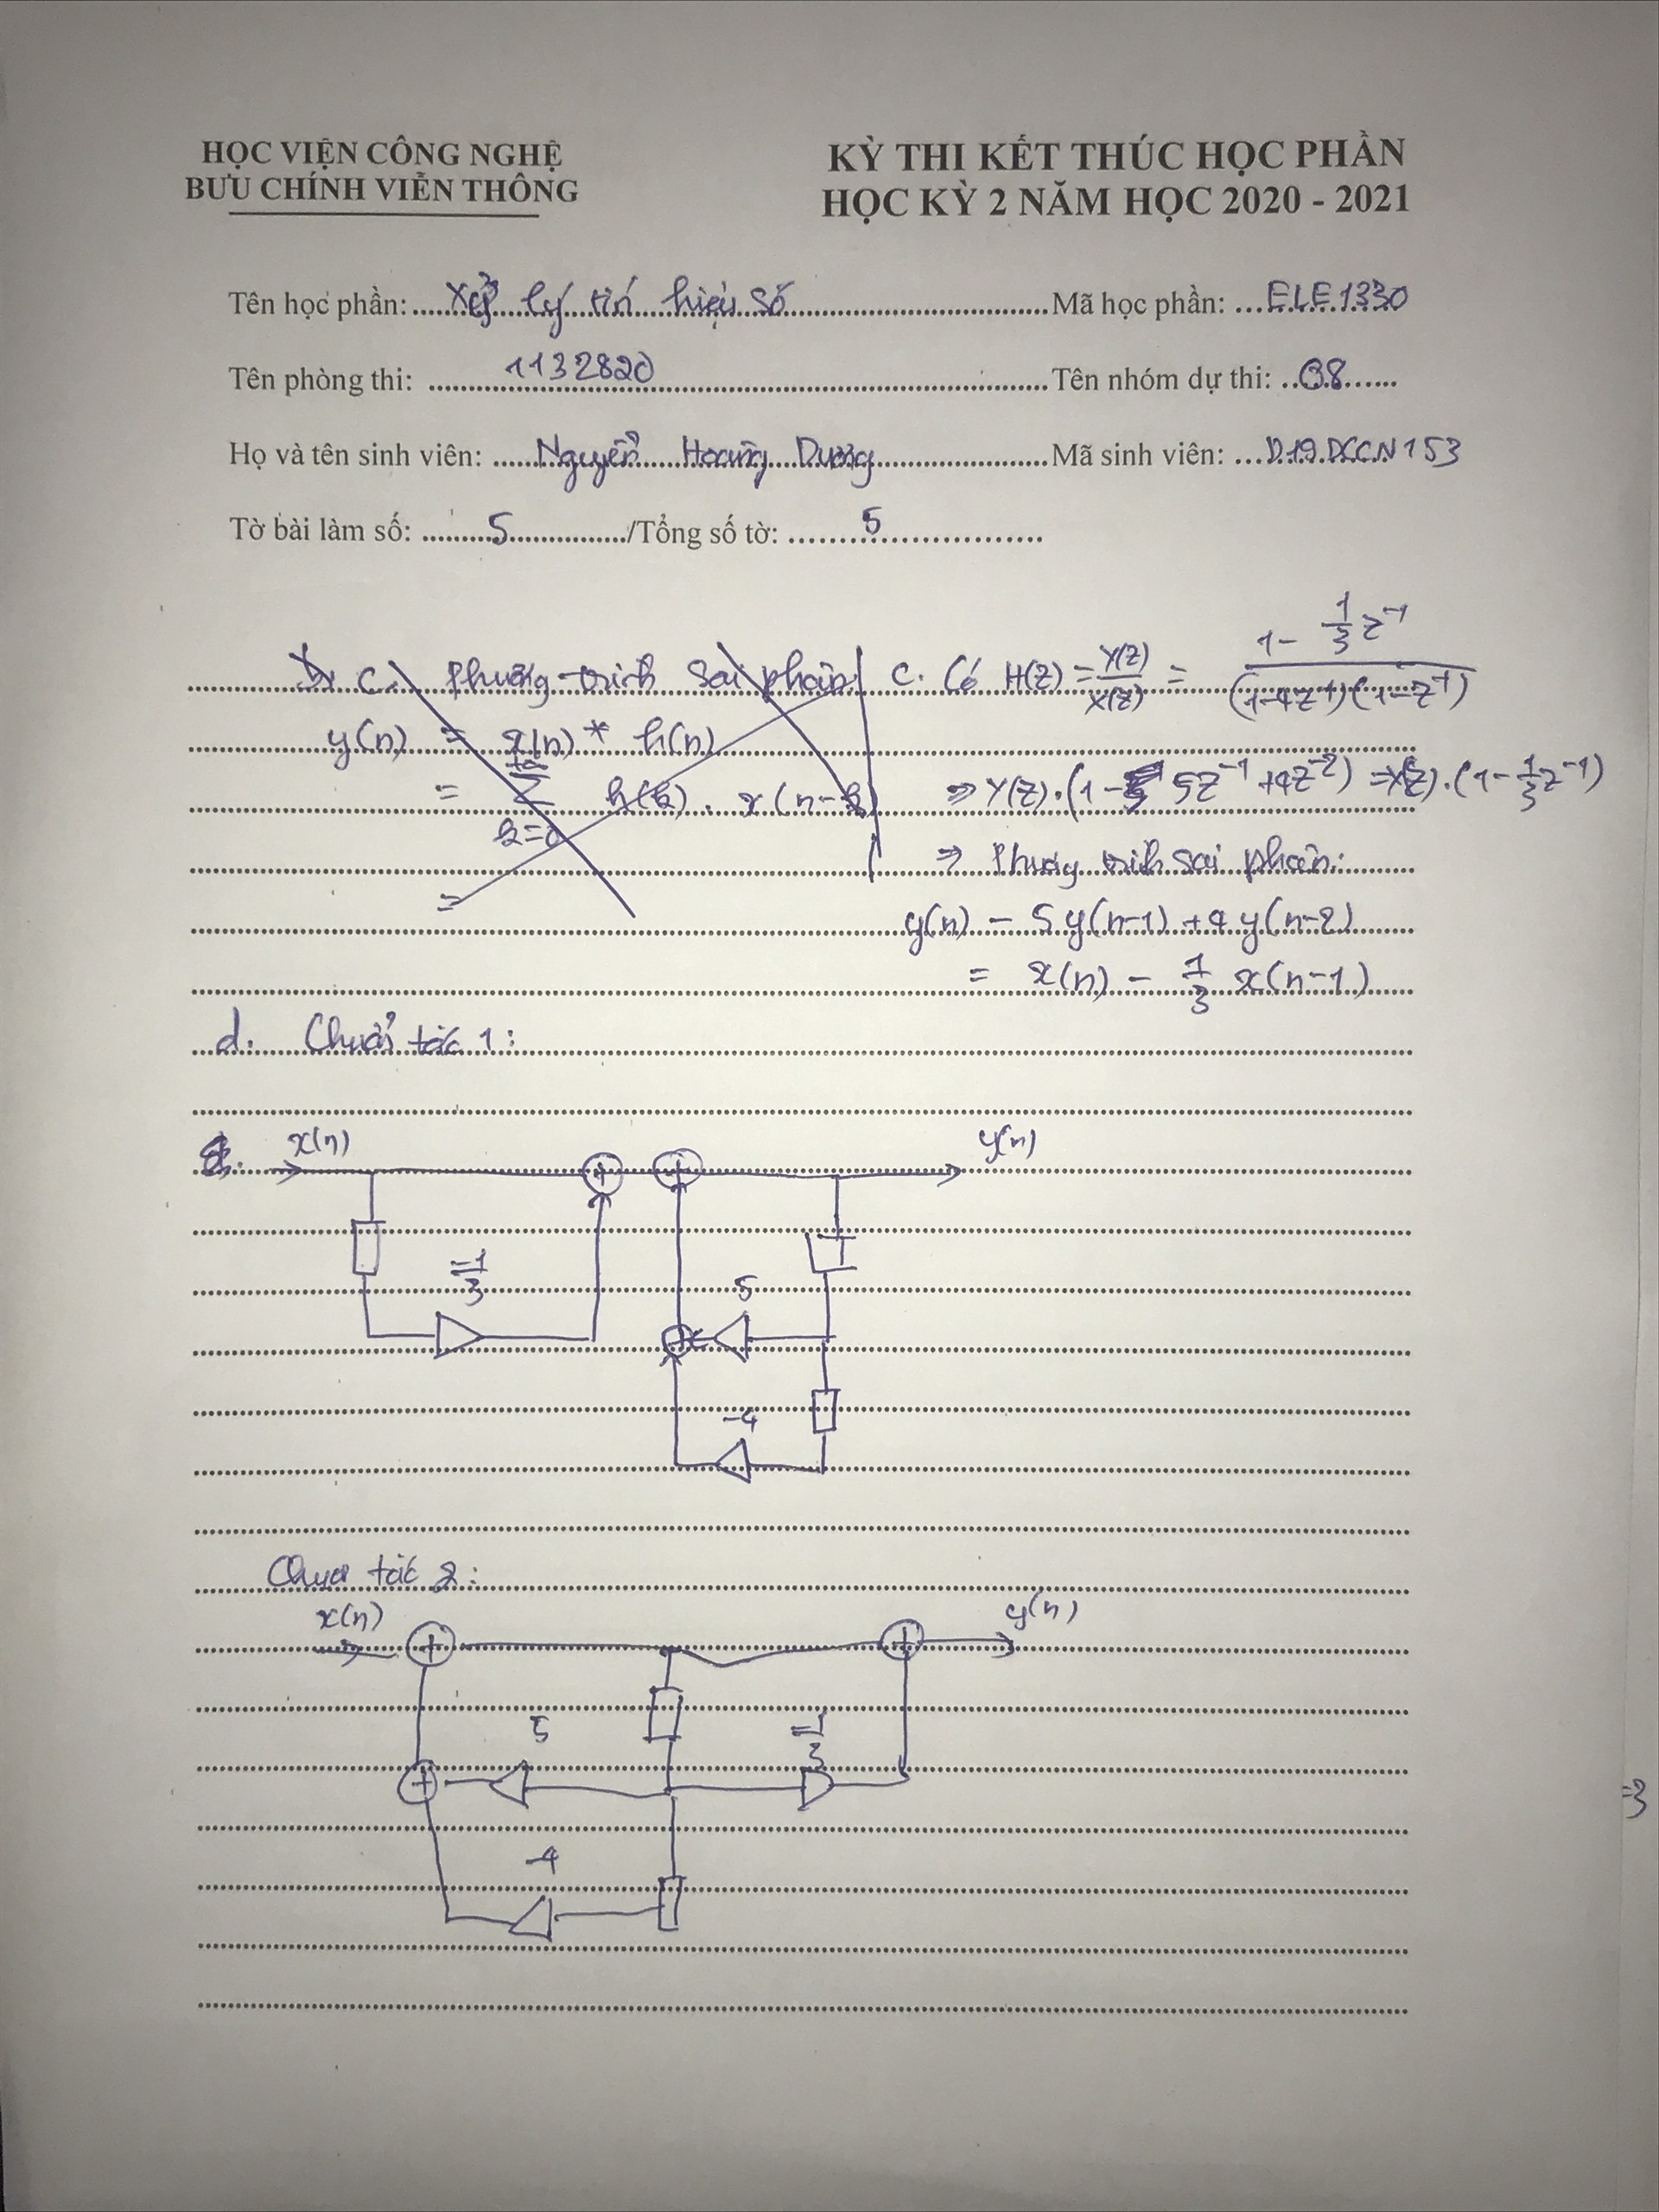 HỌC VIỆN CÔNG NGHỆ
BƯU CHÍNH VIỄN THÔNG
KỲ THI KẾT THÚC HỌC PHẦN
HỌC KỲ 2 NĂM HỌC 2020 - 2021
Tên học phần: Xử lý tín hiệu số Mã học phần: ELE1330
Tên phòng thi: 1132820 Tên nhóm dự thi: 08
Họ và tên sinh viên: Nguyễn Hoàng Dương Mã sinh viên: D19DCCN153
Tờ bài làm số: 5 /Tổng số tờ: 5
c. Phương trình sai phân
y(n) = x(n) * h(n)
= Σ h(k) . x(n-k)
k=0
=
c. Có H(z) = Y(z)/X(z) = (1 - 1/3 z⁻¹)/((1-4z⁻¹)(1-z⁻¹))
⇒ Y(z).(1 - 5z⁻¹ + 4z⁻²) = X(z).(1 - 1/3 z⁻¹)
⇒ Phương trình sai phân:
y(n) - 5y(n-1) + 4y(n-2)
= x(n) - 1/3 x(n-1)
d. Chuẩn tắc 1:
x(n) + + y(n)
-1/3 5
+
-4
Chuẩn tắc 2:
x(n) + + y(n)
5 -1/3
+
-4